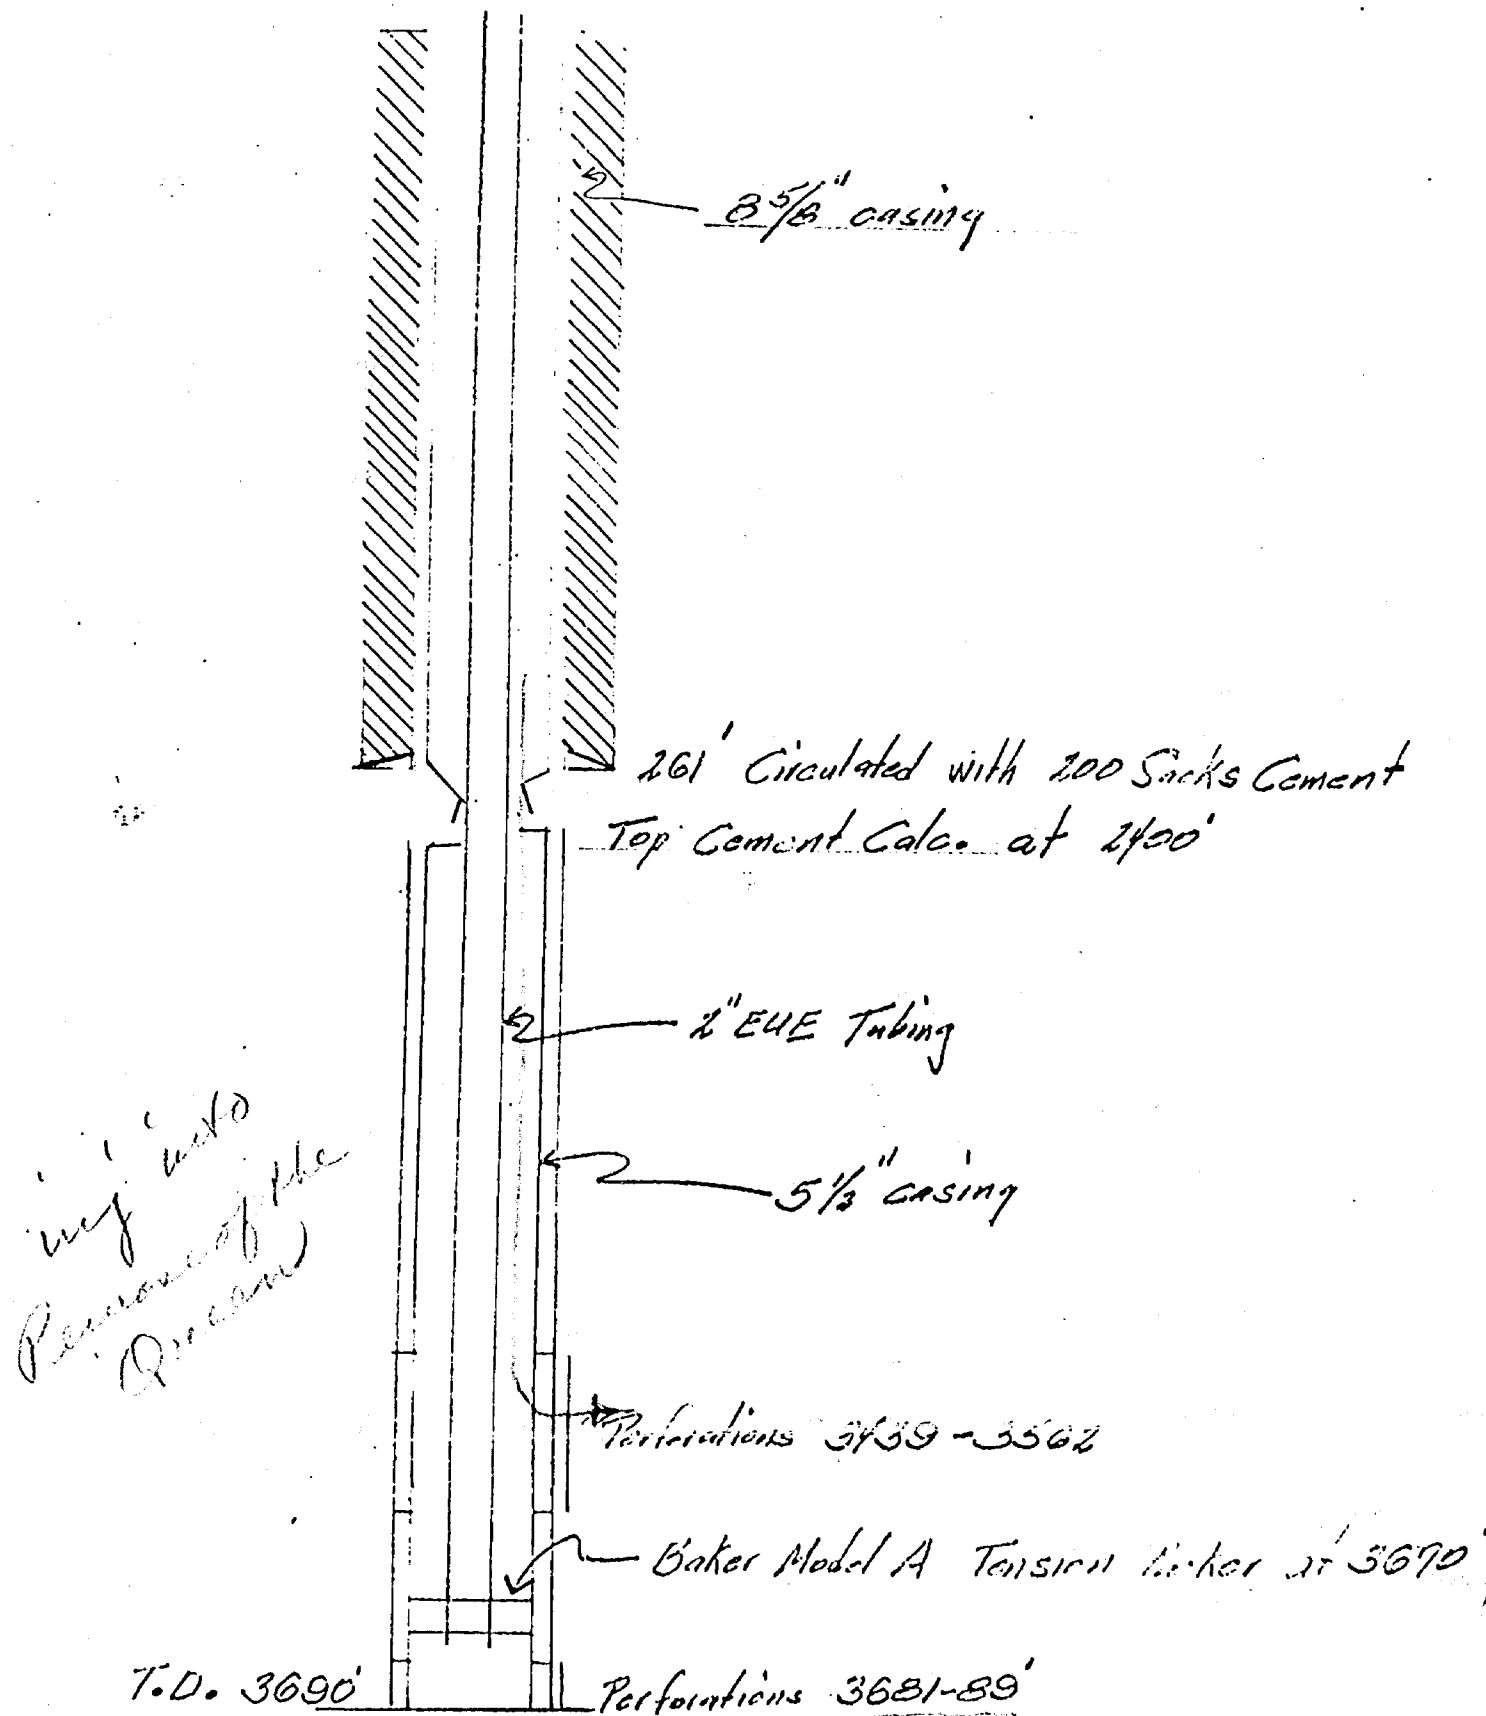 8 5/8" casing
261' Circulated with 200 Sacks Cement
Top Cement Calc. at 2400'
2" EUE Tubing
5 1/2" casing
inj into
of the
Queen
Perforations 3439-3562
Baker Model A Tension Packer at 3670'
T.D. 3690'
Perforations 3681-89'